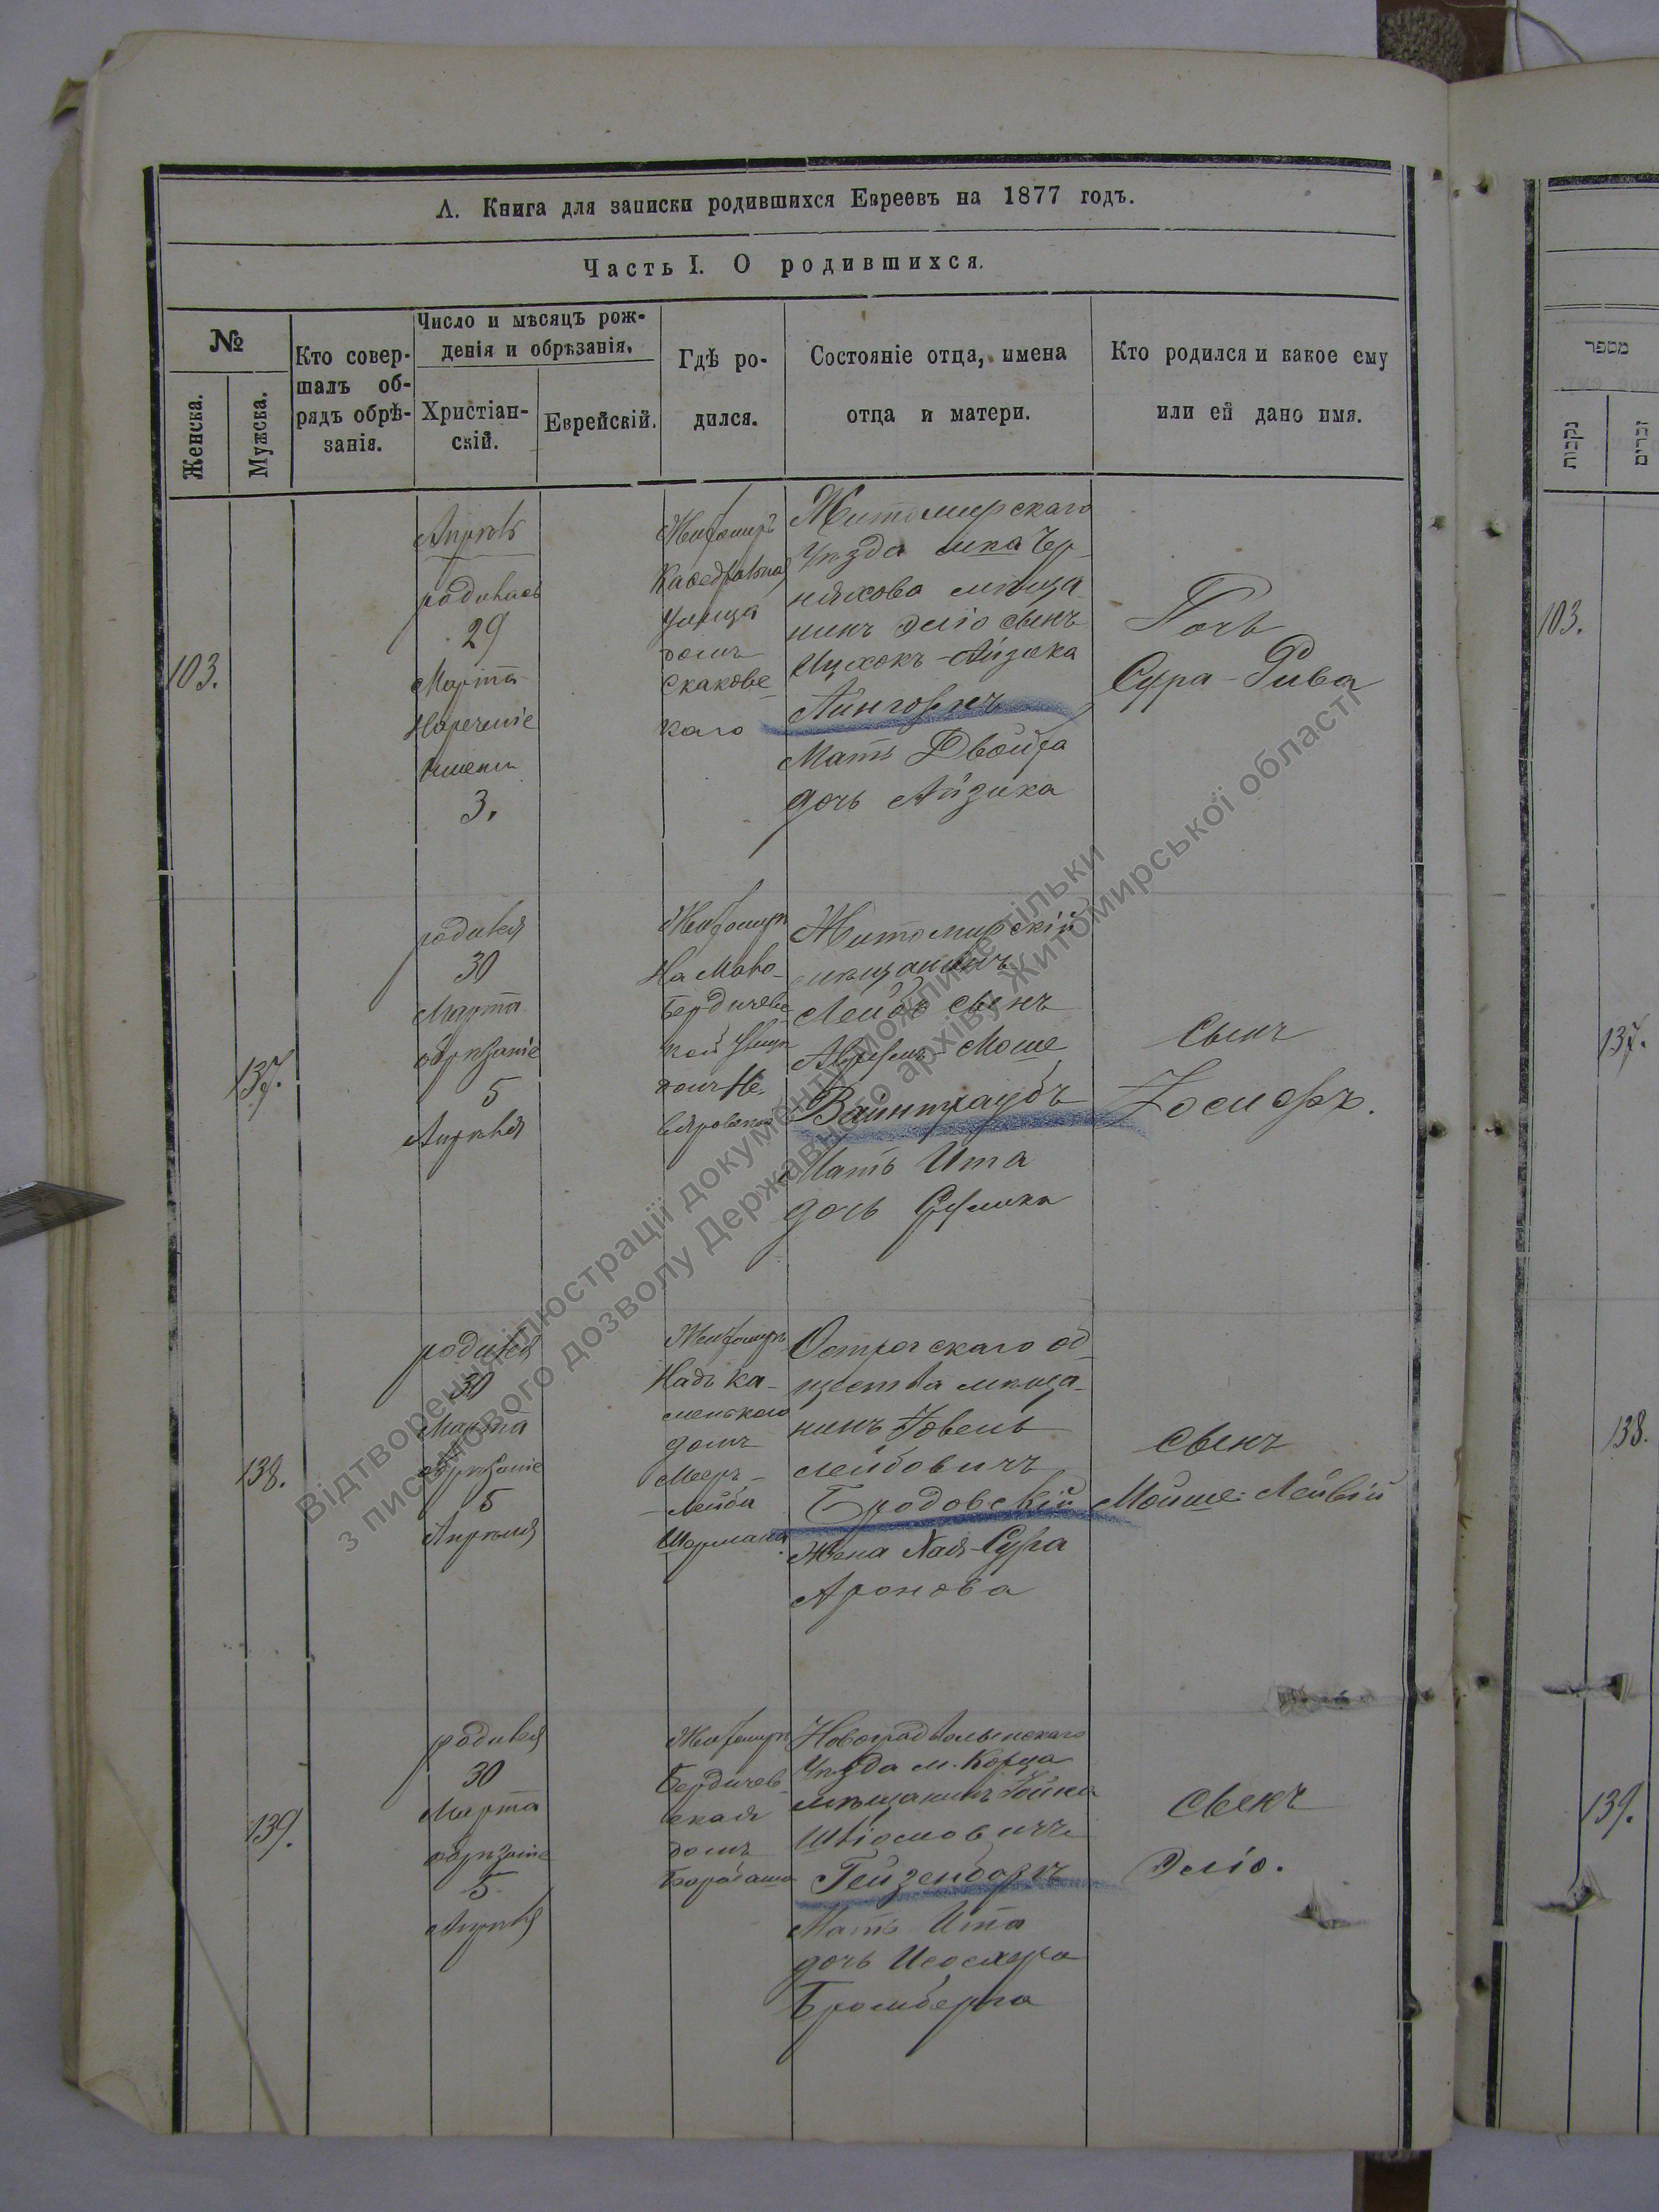 А. Книга для записки родившихся Евреевъ на 1877 годъ.
Часть I. О родившихся.
№
Женска.
Мужска.
Кто совер-
шалъ об-
рядъ обрѣ-
занія.
Число и мѣсяцъ рож-
денія и обрѣзанія.
Христіан-
скій.
Еврейскій.
Гдѣ ро-
дился.
Состояніе отца, имена
отца и матери.
Кто родился и какое ему
или ей дано имя.
103.
Апрѣль
родилась
29
Марта
Нареченіе
имени
3.
Житомиръ
Кафедральная
улица
домъ
Скаковс-
каго
Житомирскаго
Уѣзда мка Чер-
няхова мѣща-
нинъ Эліо сынъ
Ицхокъ-Айзика
Мать Двойра
дочь Айзика
Дочь
Сура-Рива
137.
родился
30
Марта
обрѣзаніе
5
Апрѣля
Житомиръ
На Мало-
Бердичевс-
кой улицѣ
домъ
Житомирскій
мѣщанинъ
Лейбъ сынъ
Авруmъ-Моше
Вайнтраубъ
Мать Ита
дочь Срулика
Сынъ
Іосифъ.
138.
родился
30
Марта
обрѣзаніе
5
Апрѣля
Житомиръ
Надъ Ка-
менькою
домъ
Мееръ-
-Лейба
Шермана.
Острогскаго об-
щества мѣща-
нинъ Іовель
Лейбовичъ
Бродовскій
Жена Хая-Сура
Аронова
Сынъ
Мойше-Лейвій
139.
родился
30
Марта
обрѣзаніе
5
Апрѣля
Житомиръ
Бердичев-
ская
домъ
Барабаша
Новоградволынскаго
Уѣзда м. Корца
мѣщанинъ Іойна
Шліомовичъ
Гейзенбергъ
Мать Ита
дочь
Бромберга
Сынъ
Эліо.
מספר
נקבות
זכרים
103.
137.
138.
139.
Відтворення ілюстрації документу можливе тільки
з письмового дозволу Державного архіву Житомирської області